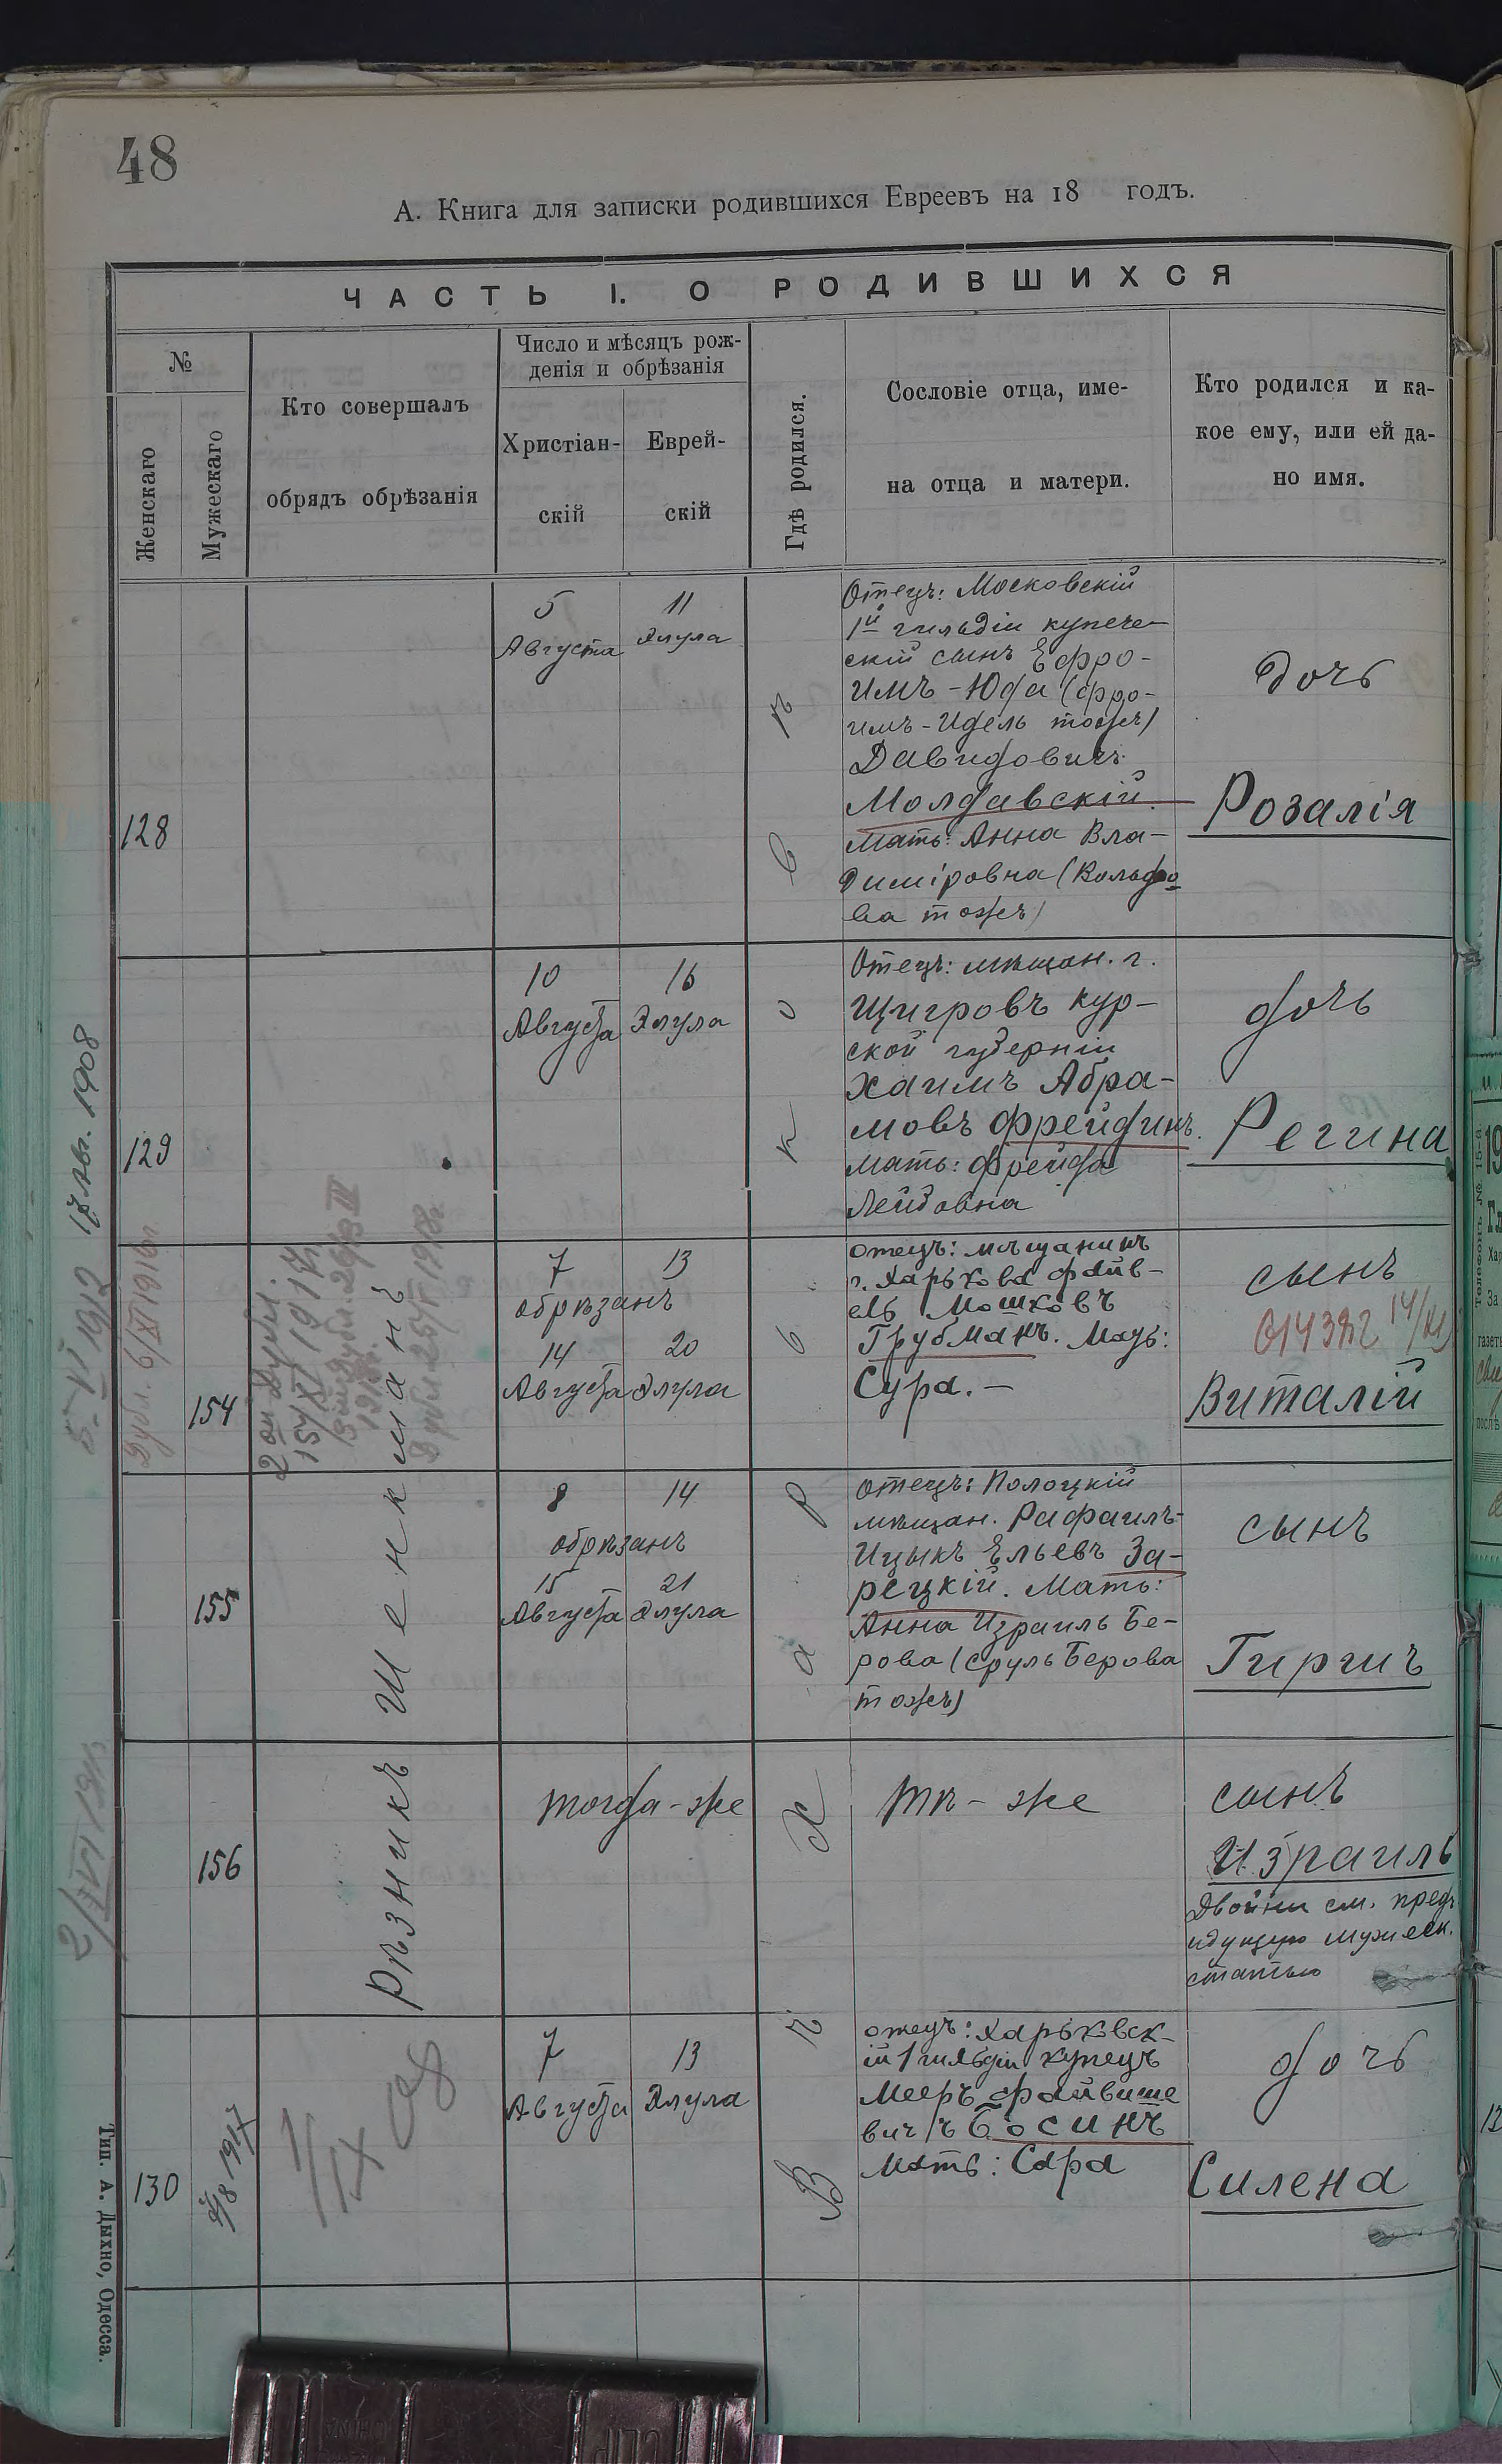 48
А. Книга для записки родившихся Евреевъ на 18 годъ.
ЧАСТЬ I. О РОДИВШИХСЯ
№
Женскаго
Мужескаго
Кто совершалъ
обрядъ обрѣзанія
Число и мѣсяцъ рож-
денія и обрѣзанія
Христіан-
скій
Еврей-
скій
Гдѣ родился.
Сословіе отца, име-
на отца и матери.
Кто родился и ка-
кое ему, или ей да-
но имя.
128
5
Августа
11
Элула
Отецъ: Московскій
1й гильдіи купече-
скій сынъ Ефро-
имъ-Юда (Фро-
имъ-Идель тожъ)
Давидовичъ
Молдавскій.
Мать: Анна Вла-
диміровна (Вольфо
ва тожъ)
дочь
Розалія
129
10
Августа
16
Элула
Отецъ: мѣщан. г.
Щигровъ Кур-
ской губерніи
Хаимъ Абра-
мовъ Фрейдинъ.
Мать: Фрейда
Лейбовна
дочь
Регина
154
7
13
обрѣзанъ
14
Августа
20
Элула
отецъ: мѣщанинъ
г. Харькова Файв-
ель Мошковъ
Грубманъ. Мать:
Сура. —
сынъ
14/XI
Виталій
155
8
14
обрѣзанъ
15
Августа
21
Элула
отецъ: Полоцкій
мѣщан. Рафаилъ-
Ицыкъ Ельевъ За-
рецкій. Мать:
Анна Израиль Бе-
рова (Сруль Берова
тожъ)
сынъ
Гиршъ
156
тогда-же
тѣ-же
сынъ
Израиль
Двойни см. предъ
идущую мужеск.
статью
130
7
Августа
13
Элула
отецъ: Харьковск-
ій 1 гильдіи купецъ
Мееръ Файвише
вичъ Босинъ
Мать: Сара
дочь
Силена
Рѣзникъ Шенкманъ
Въ Харьковѣ
17 Авг. 1908
5-VI 1912
Дубл. 6/XI 1916 г.
2/VII 1913
1/IX 08
2/8 1917
Тип. А. Дыхно, Одесса.